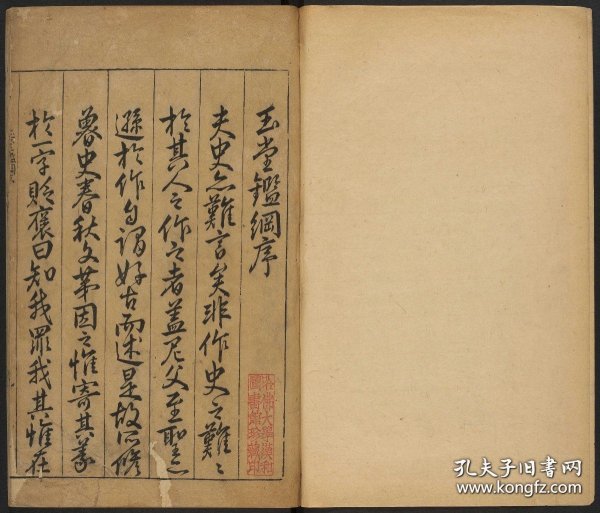 玉堂鑑綱序
夫史亦難言矣非作史之難難
於其人之作之者蓋尼父至聖亦
遜於作自謂好古而述是故以脩
魯史春秋文第因之惟寄其義
於一字貶褒曰知我罪我其惟在
孔夫子旧书网
www.kongfz.com